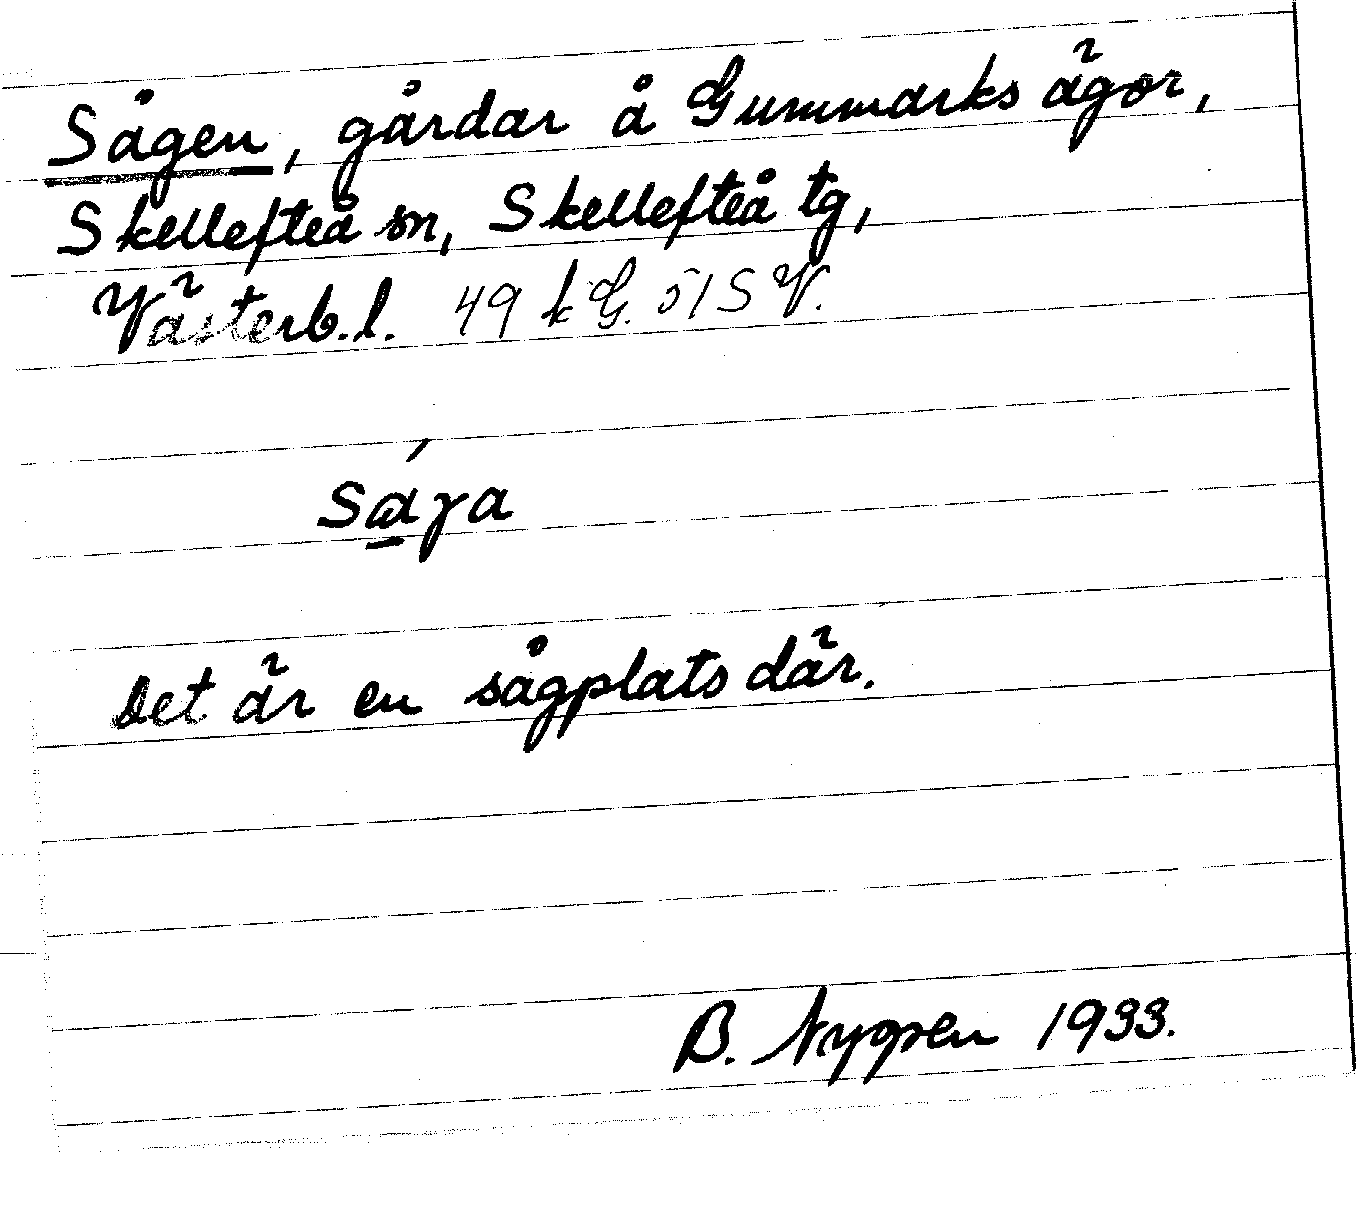 Sågen, gårdar å Gummarks ägor,
Skellefteå sn, Skellefteå tg,
Västerb.l. 49 k G. 51 S V.
Sága
Det är en sågplats där.
B. Nygren 1933.